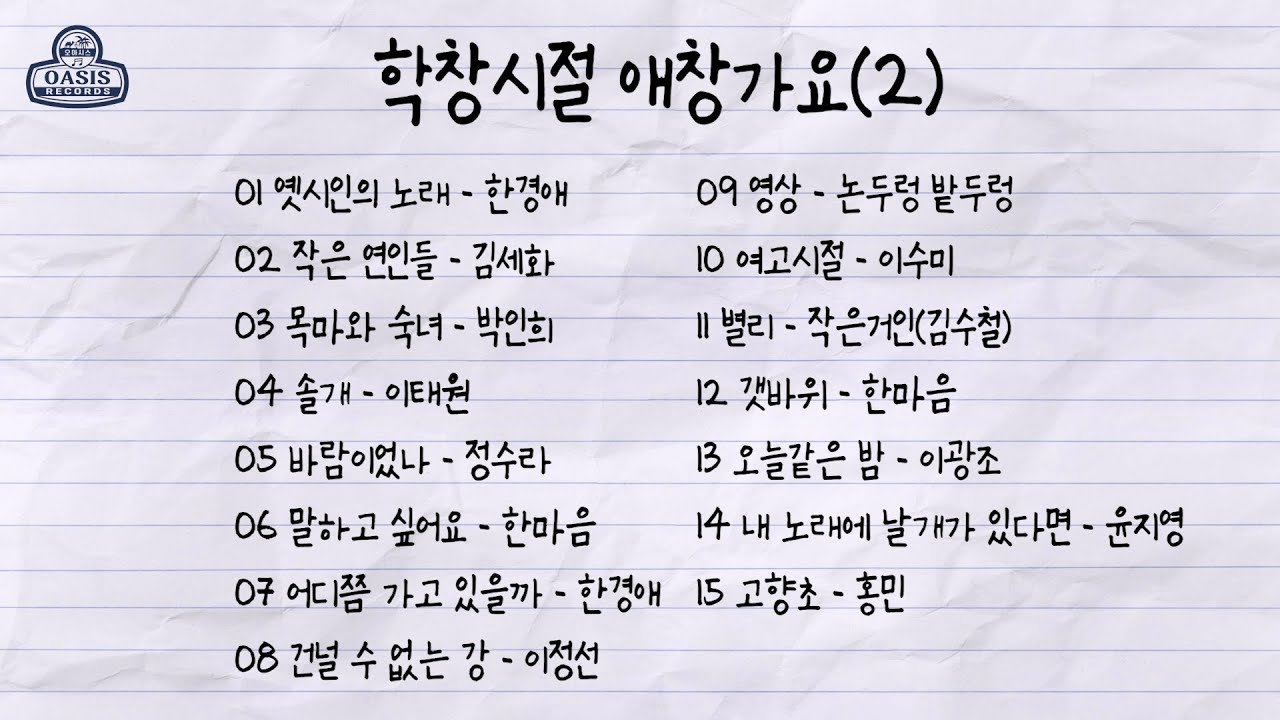 오아시스
OASIS
RECORDS
학창시절 애창가요(2)
01 옛시인의 노래 - 한경애
02 작은 연인들 - 김세화
03 목마와 숙녀 - 박인희
04 솔개 - 이태원
05 바람이었나 - 정수라
06 말하고 싶어요 - 한마음
07 어디쯤 가고 있을까 - 한경애
08 건널 수 없는 강 - 이정선
09 영상 - 논두렁 밭두렁
10 여고시절 - 이수미
11 별리 - 작은거인(김수철)
12 갯바위 - 한마음
13 오늘같은 밤 - 이광조
14 내 노래에 날개가 있다면 - 윤지영
15 고향초 - 홍민